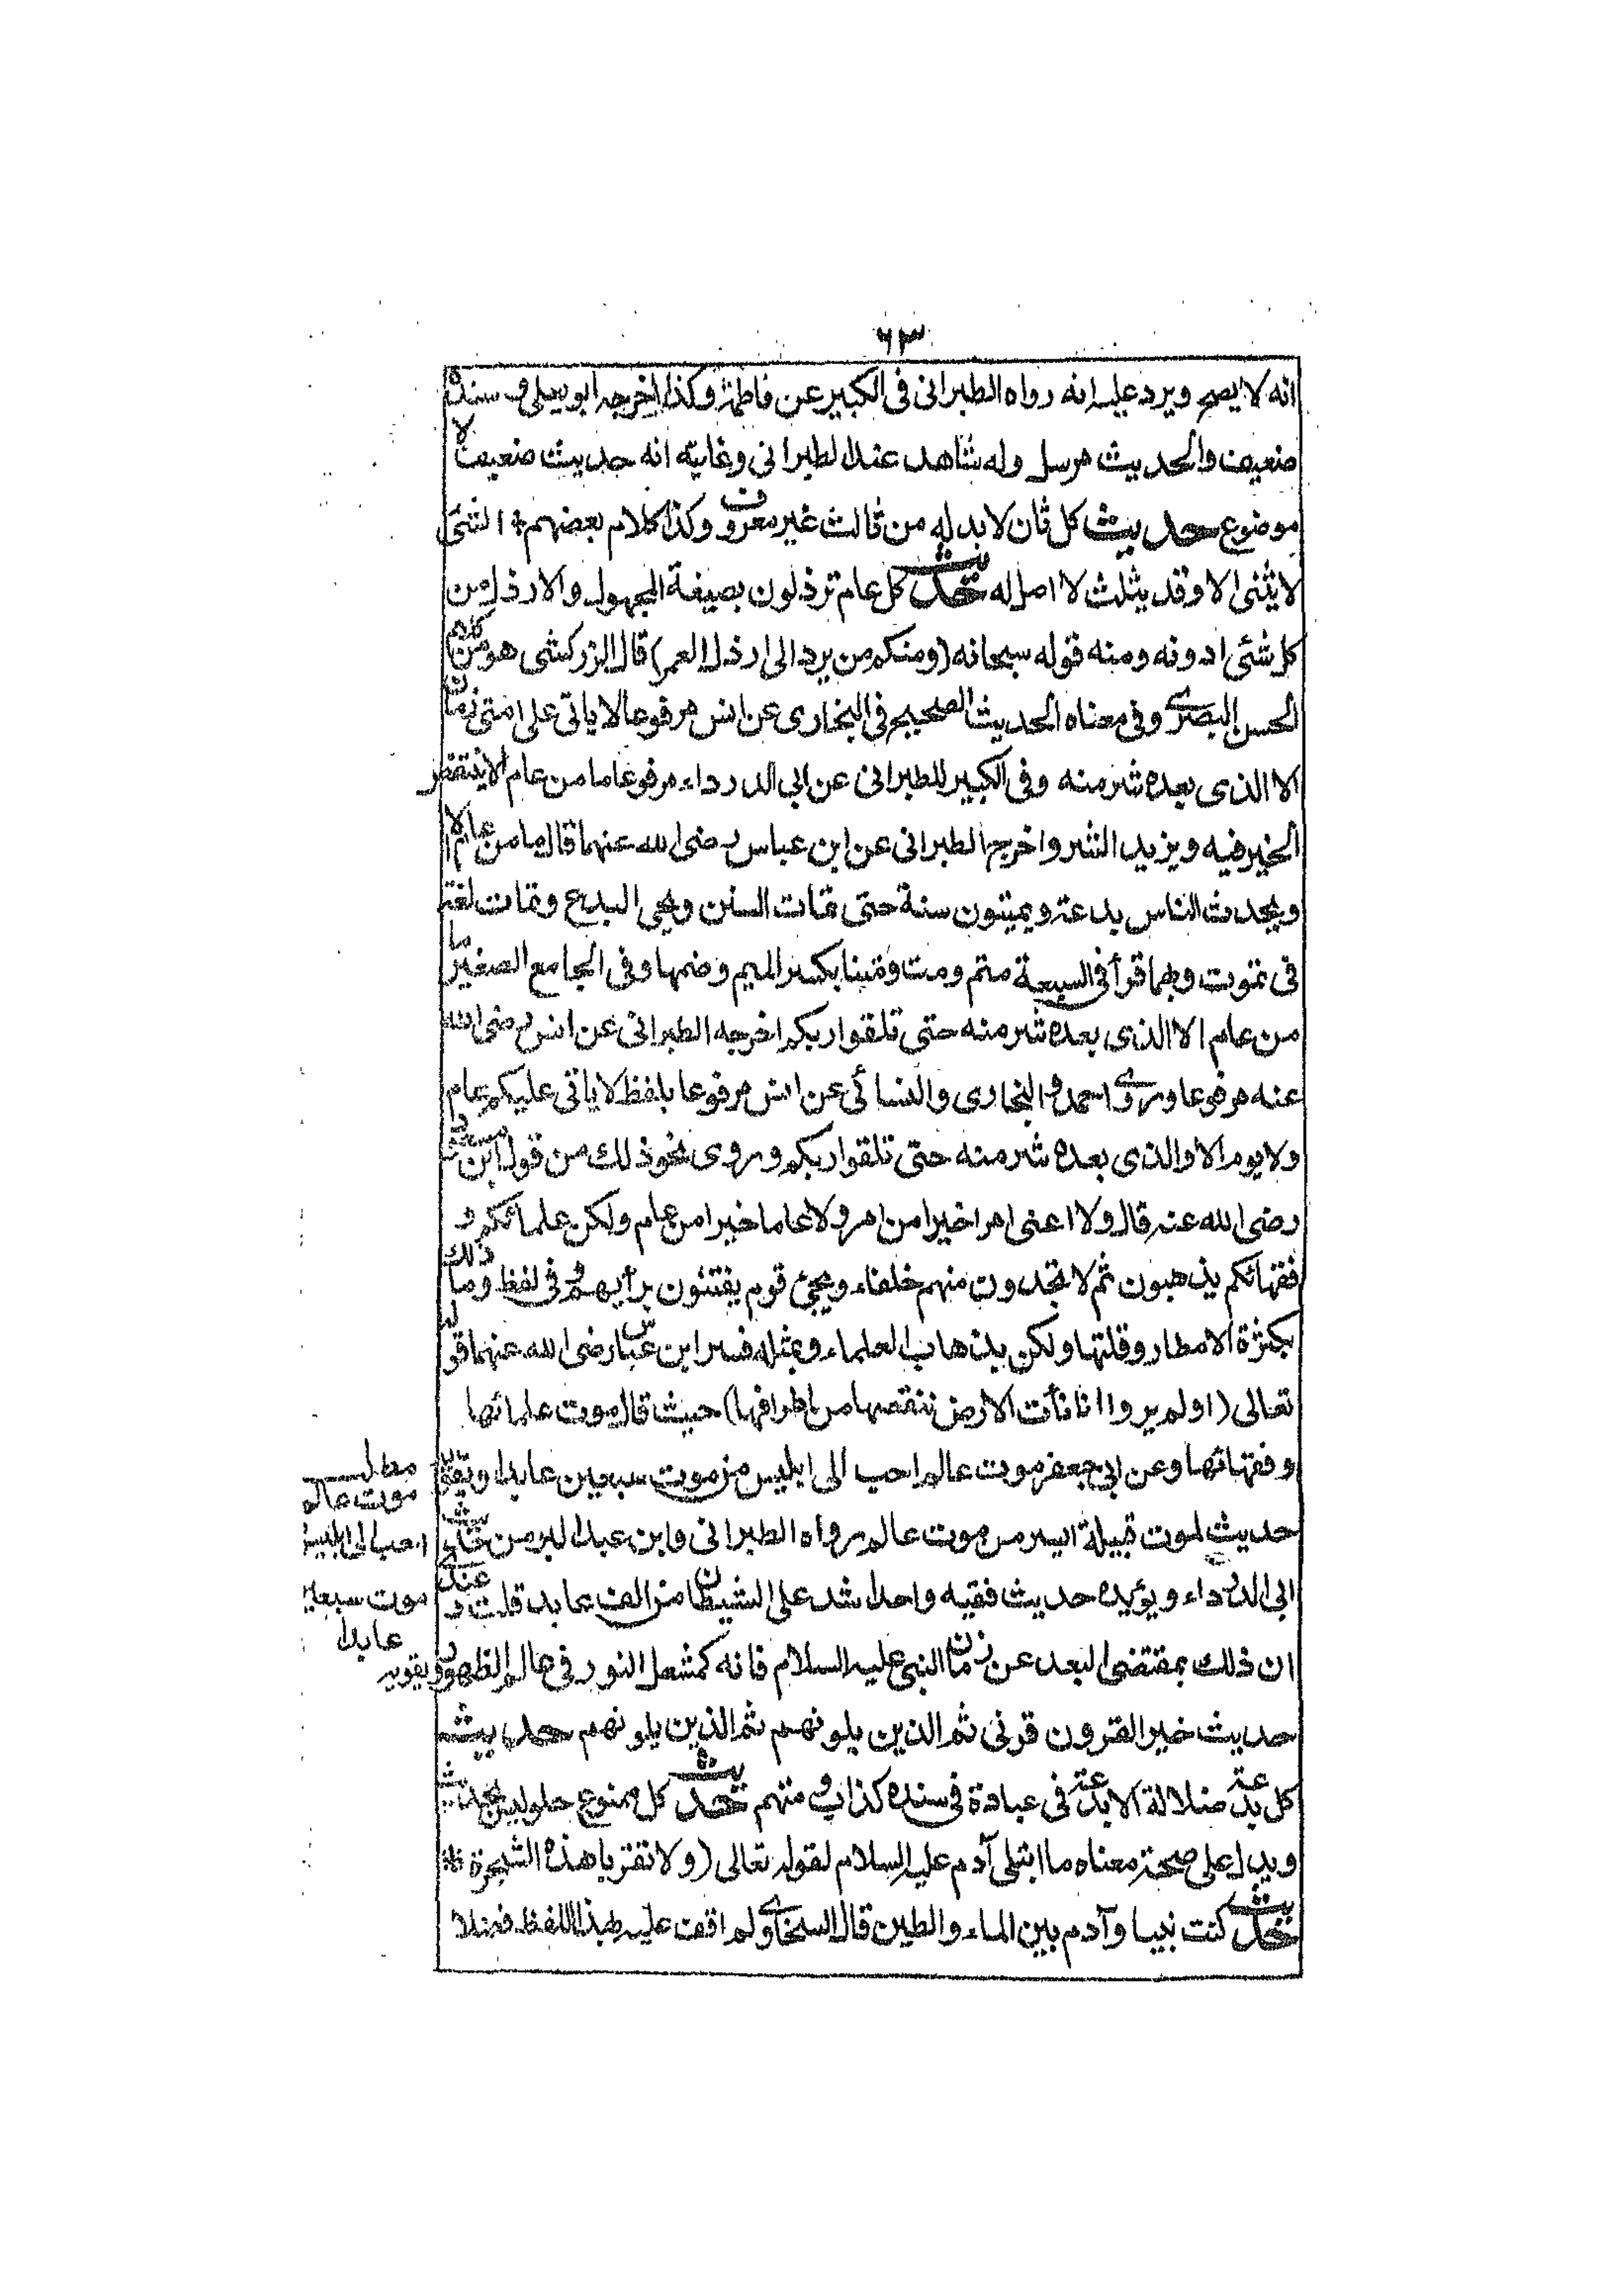 ٦٣
انه لا يصح ويرد عليه انه رواه الطبرانى فى الكبير عن فاطمة وكذا اخرجه ابو يعلى وسنده
ضعيف والحديث مرسل وله شاهد عند الطبرانى وغايته انه حديث ضعيف لا
موضوع حديث كل ثان لا بد له من ثالث غير معروف وكذا كلام بعضهم الشئ
لا يثنى الا وقد يثلث لا اصل له حديث كل عام ترذلون بصيغة المجهول والارذل من
كل شئى ادونه ومنه قوله سبحانه (ومنكم من يرد الى ارذل العمر) قال الزركشى هو من كلام
الحسن البصرى وفى معناه الحديث الصحيح فى البخارى عن انس مرفوعا لا ياتى على امتى زمان
الا الذى بعده شر منه وفى الكبير للطبرانى عن ابى الدرداء مرفوعا ما من عام الا ينتقض
الخير فيه ويزيد الشر واخرج الطبرانى عن ابن عباس رضى الله عنهما قال ما من عام الا
ويحدث الناس بدعة ويميتون سنة حتى تمات السنن ويحيى البدع وتمات لغة
فى تموت وبهما قرأ فى السبعة متم ومت ومتنا بكسر الميم وضمها وفى الجامع الصغير ما
من عام الا الذى بعده شر منه حتى تلقوا ربكم اخرجه الطبرانى عن انس رضى الله
عنه مرفوعا وروى احمد والبخارى والنسائى عن انس مرفوعا بلفظ لا ياتى عليكم عام
ولا يوم الا والذى بعده شر منه حتى تلقوا ربكم وروى نحو ذلك من قول ابن مسعود
رضى الله عنه قال ولا اعنى امرا خيرا من امر ولا عاما خيرا من عام ولكن علمائكم و
فقهائكم يذهبون ثم لا تجدون منهم خلفاء ويجئ قوم يفتنون برأيهم وفى لفظ وما ذلك
بكثرة الامطار وقلتها ولكن بذهاب العلماء وبمثله فسر ابن عباس رضى الله عنهما قوله
تعالى (اولم يروا انا نأت الارض ننقصها من اطرافها) حيث قال موت علمائها
وفقهائها وعن ابى جعفر موت عالم احب الى ابليس من موت سبعين عابدا ويقويه
حديث لموت قبيلة ايسر من موت عالم رواه الطبرانى وابن عبد البر من حديث
ابى الدرداء ويؤيده حديث فقيه واحد اشد على الشيطان من الف عابد قلت وعندى
ان ذلك بمقتضى البعد عن زمان النبى عليه السلام فانه كمشعل النور فى عالم الظهور ويقويه
حديث خير القرون قرنى ثم الذين يلونهم ثم الذين يلونهم حديث
كل بدعة ضلالة الا بدعة فى عبادة فى سنده كذاب ومتهم حديث كل ممنوع حلو ليس بحديث
ويدل على صحة معناه ما ابتلى آدم عليه السلام لقوله تعالى (ولا تقربا هذه الشجرة
حديث كنت نبيا وآدم بين الماء والطين قال السخاوى ولم اقف عليه بهذا اللفظ فضلا
مطلب
موت عالم
احب الى ابليس
موت سبعين
عابدا